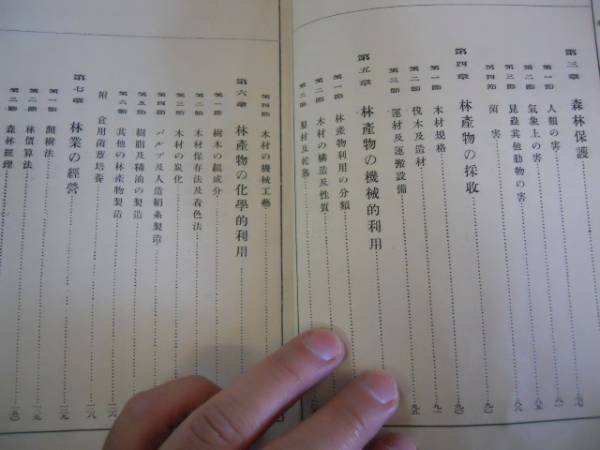 第三章 森林保護
第一節 人類の害
第二節 氣象上の害
第三節 昆蟲其他動物の害
第四節 菌害
第四章 林產物の採收
第一節 木材規格
第二節 伐木及造材
第三節 運材及運搬設備
第五章 林產物の機械的利用
第一節 林產物利用の分類
第二節 木材の構造及性質
第三節 製材及乾燥
第四節 木材の機械工藝
第六章 林產物の化學的利用
第一節 樹木の組成分
第二節 木材保存法及着色法
第三節 木材の炭化
第四節 パルプ及人造絹糸製造
第五節 樹脂及精油の製造
第六節 其他の林產物製造
附 食用菌蕈培養
第七章 林業の經營
第一節 測樹法
第二節 林價算法
第三節 森林經理